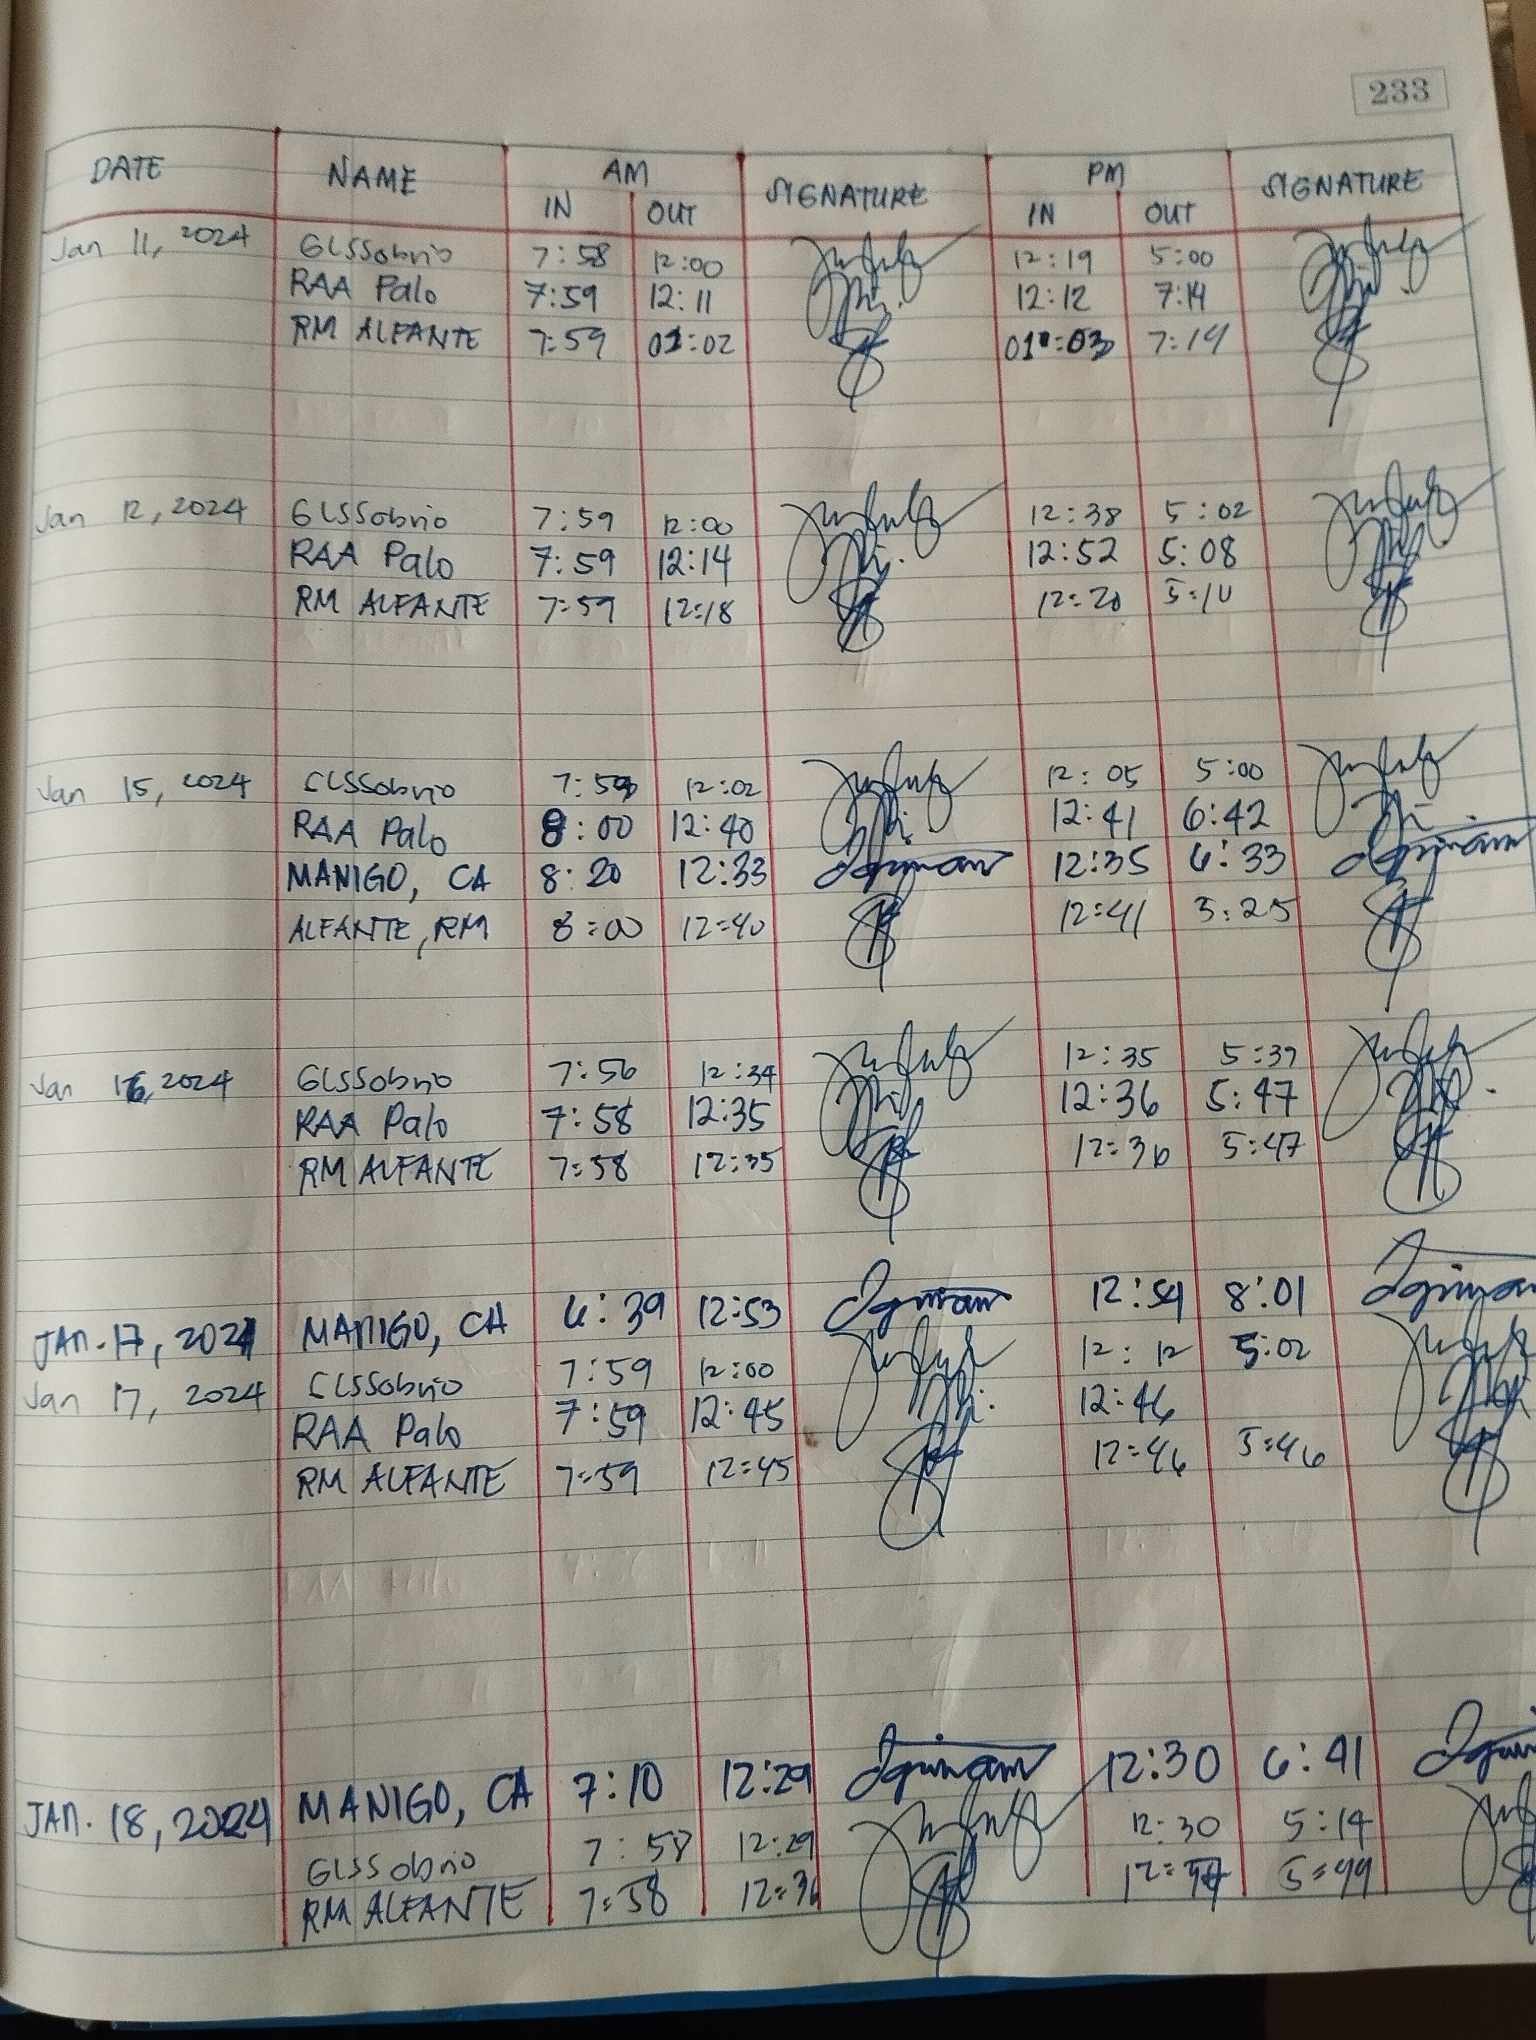 233
DATE NAME AM SIGNATURE PM SIGNATURE
IN OUT IN OUT
Jan 11, 2024 GLSSobrio 7:58 12:00 12:19 5:00
RAA Palo 7:59 12:11 12:12 7:14
RM ALFANTE 7:59 01:02 01:03 7:14
Jan 12, 2024 GLSSobrio 7:59 12:00 12:38 5:02
RAA Palo 7:59 12:14 12:52 5:08
RM ALFANTE 7:59 12:18 12:20 5:10
Jan 15, 2024 GLSSobrio 7:59 12:02 12:05 5:00
RAA Palo 8:00 12:40 12:41 6:42
MANIGO, CA 8:20 12:33 12:35 6:33
ALFANTE, RM 8:00 12:40 12:41 5:25
Jan 16, 2024 GLSSobrio 7:56 12:34 12:35 5:39
RAA Palo 7:58 12:35 12:36 5:47
RM ALFANTE 7:58 12:35 12:36 5:47
JAN. 17, 2024 MANIGO, CA 6:39 12:53 12:54 8:01
Jan 17, 2024 GLSSobrio 7:59 12:00 12:12 5:02
RAA Palo 7:59 12:45 12:46
RM ALFANTE 7:59 12:45 12:46 5:46
JAN. 18, 2024 MANIGO, CA 7:10 12:29 12:30 6:41
GLSSobrio 7:58 12:29 12:30 5:14
RM ALFANTE 7:58 12:36 5:49